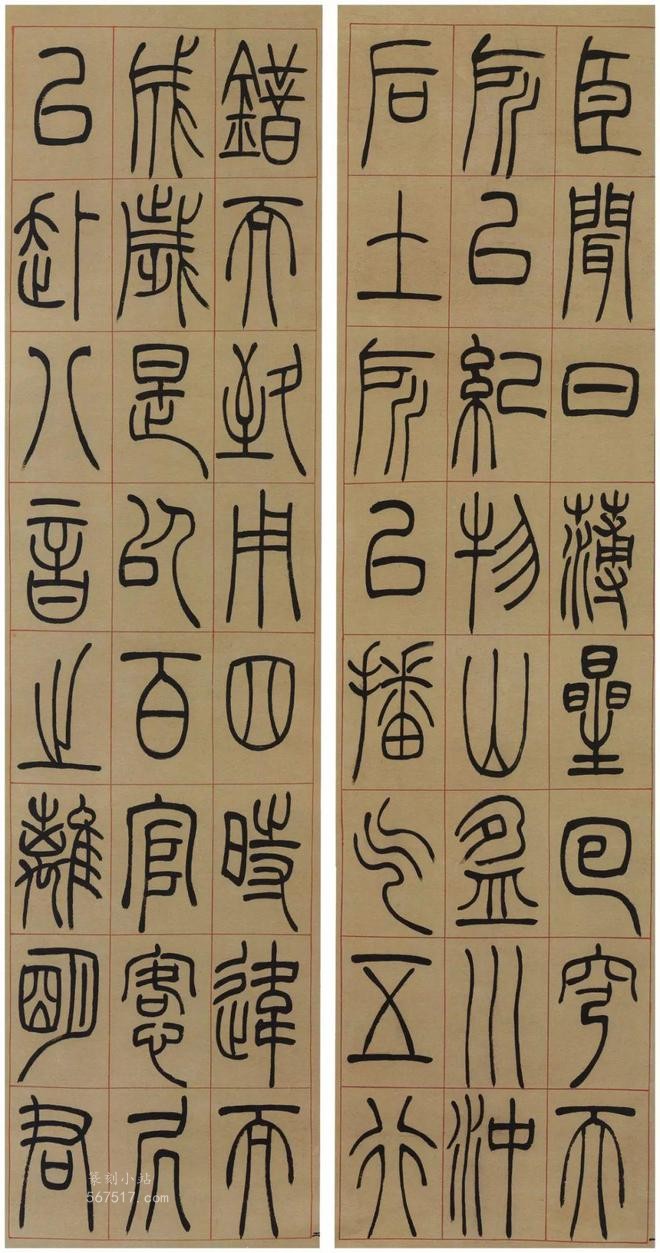 臣聞日薄星回穹天
所以紀物山盈川沖
后土所以播气五行
錯而致用四時違而
成歲是以百官愙凥
以赴八音之離明君
篆刻小站
567517.com